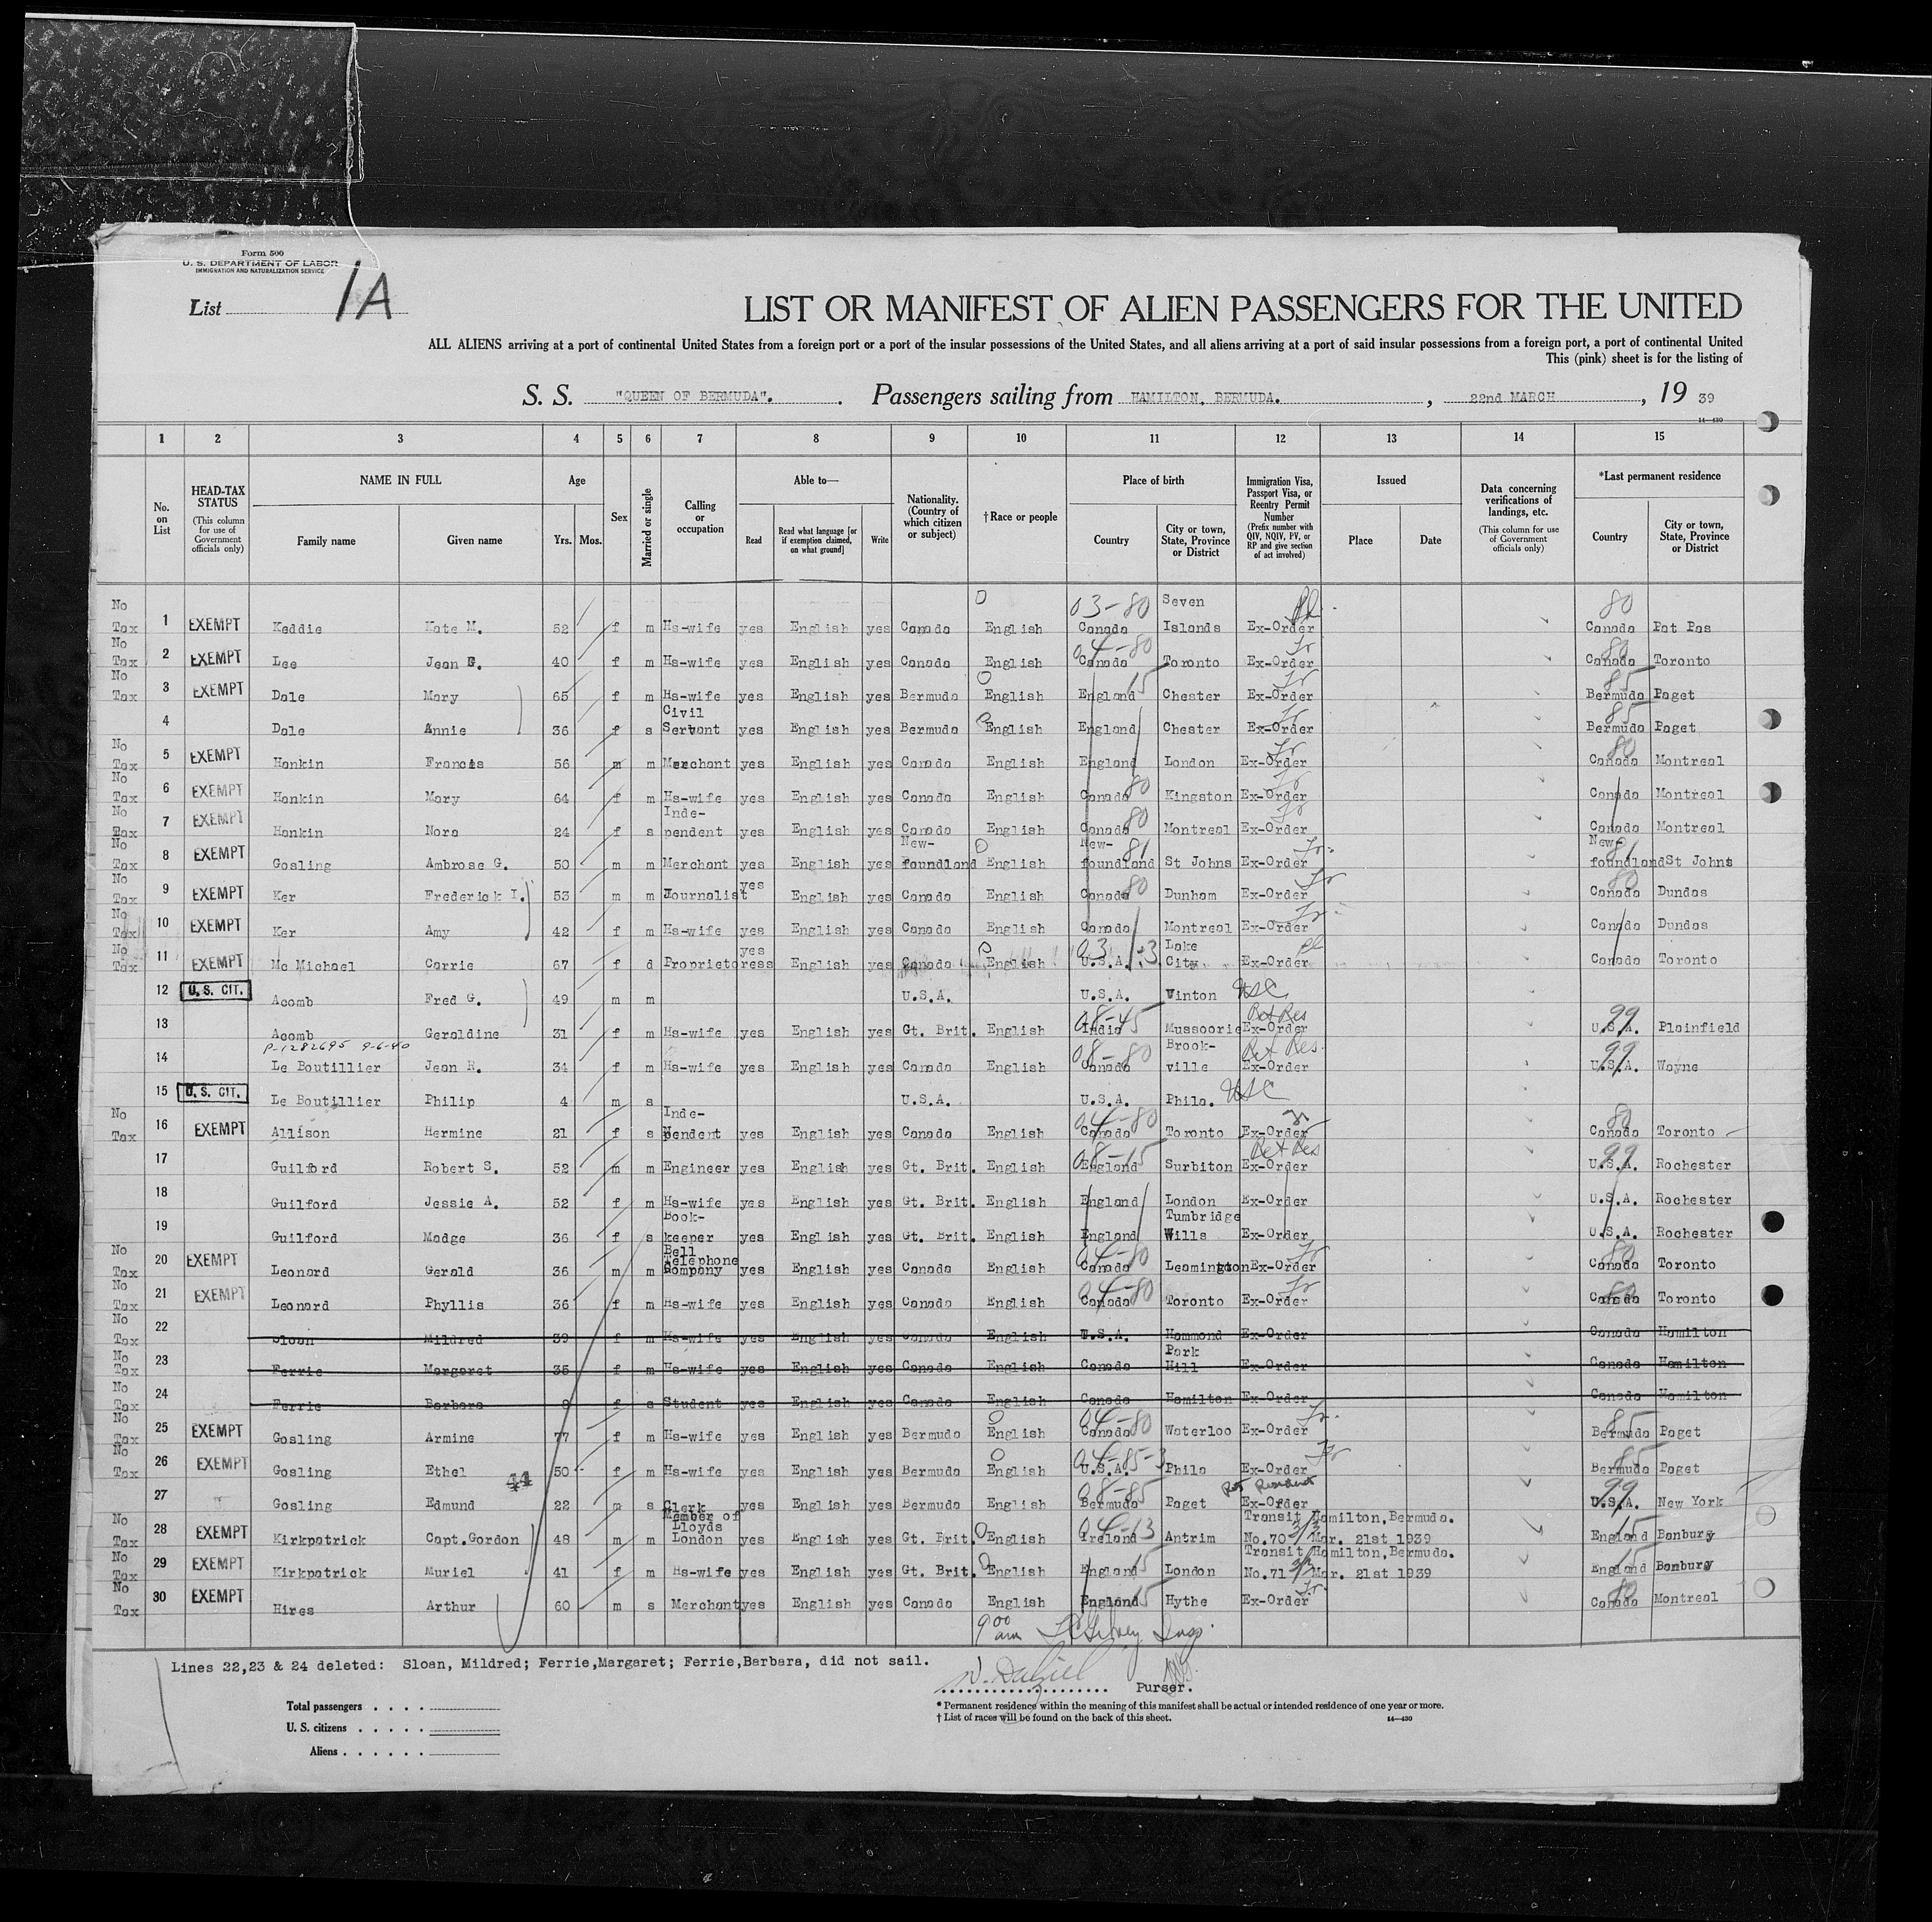 Form 500
U. S. DEPARTMENT OF LABOR
IMMIGRATION AND NATURALIZATION SERVICE
List 1A
LIST OR MANIFEST OF ALIEN PASSENGERS FOR THE UNITED
ALL ALIENS arriving at a port of continental United States from a foreign port or a port of the insular possessions of the United States, and all aliens arriving at a port of said insular possessions from a foreign port, a port of continental United
This (pink) sheet is for the listing of
S. S. "QUEEN OF BERMUDA". Passengers sailing from HAMILTON, BERMUDA. , 22nd MARCH , 19 39
14—430
1 2 3 4 5 6 7 8 9 10 11 12 13 14 15
No. on List
HEAD-TAX STATUS (This column for use of Government officials only)
NAME IN FULL Family name Given name
Age Yrs. Mos.
Sex
Married or single
Calling or occupation
Able to— Read Read what language [or if exemption claimed, on what ground] Write
Nationality. (Country of which citizen or subject)
†Race or people
Place of birth Country City or town, State, Province or District
Immigration Visa, Passport Visa, or Reentry Permit Number (Prefix number with QIV, NQIV, PV, or RP and give section of act involved)
Issued Place Date
Data concerning verifications of landings, etc. (This column for use of Government officials only)
*Last permanent residence Country City or town, State, Province or District
No Tax 1 EXEMPT Keddie Kate M. 52 f m Hs-wife yes English yes Canada English 03-80 Canada Seven Islands Ex-Order 80 Canada Pat Pas
No Tax 2 EXEMPT Lee Jean G. 40 f m Hs-wife yes English yes Canada English 04-80 Canada Toronto Ex-Order Tr 80 Canada Toronto
No Tax 3 EXEMPT Dale Mary 65 f m Hs-wife yes English yes Bermuda English England 15 Chester Ex-Order Tr 85 Bermuda Paget
4 Dale Annie 36 f s Civil Servant yes English yes Bermuda English England Chester Ex-Order Tr 85 Bermuda Paget
No Tax 5 EXEMPT Hankin Francis 56 m m Merchant yes English yes Canada English England London Ex-Order Tr 80 Canada Montreal
No Tax 6 EXEMPT Hankin Mary 64 f m Hs-wife yes English yes Canada English Canada 80 Kingston Ex-Order Tr Canada Montreal
No Tax 7 EXEMPT Hankin Nora 24 f s Inde-pendent yes English yes Canada English Canada 80 Montreal Ex-Order Tr Canada Montreal
No Tax 8 EXEMPT Gosling Ambrose G. 50 m m Merchant yes English yes New-foundland English New-foundland 81 St Johns Ex-Order Tr. New-foundland 81 St Johns
No Tax 9 EXEMPT Ker Frederick I. 53 m m Journalist yes English yes Canada English Canada 80 Dunham Ex-Order Tr 80 Canada Dundas
No Tax 10 EXEMPT Ker Amy 42 f m Hs-wife yes English yes Canada English Canada Montreal Ex-Order Tr. Canada Dundas
No Tax 11 EXEMPT Mc Michael Carrie 67 f d Proprietoress yes English yes Canada English 03 U.S.A. Lake City Ex-Order Canada Toronto
12 U. S. CIT. Acomb Fred G. 49 m m U.S.A. U.S.A. Vinton USC
13 Acomb Geraldine 31 f m Hs-wife yes English yes Gt. Brit. English 08-45 India Mussoorie Ret Res Ex-Order 99 U.S.A. Plainfield
P-1282695 9-6-40
14 Le Boutillier Jean R. 34 f m Hs-wife yes English yes Canada English 08-80 Canada Brook-ville Ret Res. Ex-Order 99 U.S.A. Wayne
15 U. S. CIT. Le Boutillier Philip 4 m s U.S.A. U.S.A. Phila. USC
No Tax 16 EXEMPT Allison Hermine 21 f s Inde-pendent yes English yes Canada English 04-80 Canada Toronto Ex-Order 80 Canada Toronto
17 Guilford Robert S. 52 m m Engineer yes English yes Gt. Brit. English 08-15 England Surbiton Ret Res Ex-Order 99 U.S.A. Rochester
18 Guilford Jessie A. 52 f m Hs-wife yes English yes Gt. Brit. English England London Ex-Order U.S.A. Rochester
19 Guilford Madge 36 f s Book-keeper yes English yes Gt. Brit. English England Tumbridge Wills Ex-Order U.S.A. Rochester
No Tax 20 EXEMPT Leonard Gerald 36 m m Bell Telephone Company yes English yes Canada English 04-80 Canada Leamington Ex-Order Tr 80 Canada Toronto
No Tax 21 EXEMPT Leonard Phyllis 36 f m Hs-wife yes English yes Canada English 04-80 Canada Toronto Ex-Order Tr 80 Canada Toronto
No Tax 22 Sloan Mildred 39 f m Hs-wife yes English yes Canada English U.S.A. Hammond Ex-Order Canada Hamilton
No Tax 23 Ferrie Margaret 35 f m Hs-wife yes English yes Canada English Canada Park Hill Ex-Order Canada Hamilton
No Tax 24 Ferrie Barbara 9 f s Student yes English yes Canada English Canada Hamilton Ex-Order Canada Hamilton
No Tax 25 EXEMPT Gosling Armine 77 f m Hs-wife yes English yes Bermuda English 04-80 Canada Waterloo Ex-Order Tr. 85 Bermuda Paget
No Tax 26 EXEMPT Gosling Ethel 44 50 f m Hs-wife yes English yes Bermuda English 04-85-3 U.S.A. Phila Ex-Order Tr 85 Bermuda Paget
27 Gosling Edmund 22 m s Clerk yes English yes Bermuda English 08-85 Bermuda Paget Ret Resident Ex-Order 99 U.S.A. New York
No Tax 28 EXEMPT Kirkpatrick Capt.Gordon 48 m m Member of Lloyds London yes English yes Gt. Brit. English 04-13 Ireland Antrim Transit Hamilton,Bermuda. No.70 3/3 Mar. 21st 1939 15 England Banbury
No Tax 29 EXEMPT Kirkpatrick Muriel 41 f m Hs-wife yes English yes Gt. Brit. English England 15 London Transit Hamilton,Bermuda. No.71 3/3 Mar. 21st 1939 15 England Banbury
No Tax 30 EXEMPT Hires Arthur 60 m s Merchant yes English yes Canada English England 15 Hythe Ex-Order Tr. 80 Canada Montreal
9 00 am Insp.
Lines 22,23 & 24 deleted: Sloan, Mildred; Ferrie,Margaret; Ferrie,Barbara, did not sail.
N. Dalziel Purser.
Total passengers
U. S. citizens
Aliens
* Permanent residence within the meaning of this manifest shall be actual or intended residence of one year or more.
† List of races will be found on the back of this sheet.
14—430